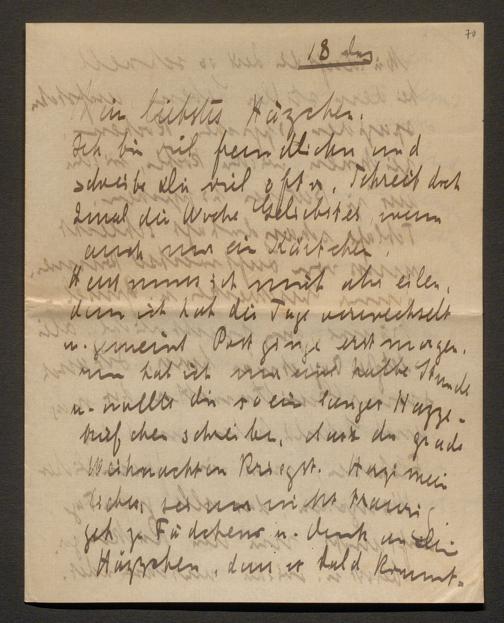 70
18 Dez
Mein liebstes Häzzchen.
Ich bin viel freundlicher und
schreibe dir viel öfter, schreib doch
2mal die Woche Geliebstes, wenn
auch nur ein Kärtchen.
Heut muss ich mich aber eilen,
denn ich hab die Tage verwechselt
u. gemeint Post ginge erst morgen.
nun hab ich nur eine halbe Stunde
u. wollte dir so ein langes
schreiben, dass du grade
Weihnachten kriegst. mein
liebes, sei nur nicht traurig
geh zu Fädchens u. denk an dein
Häzzchen, dass es bald kommt.